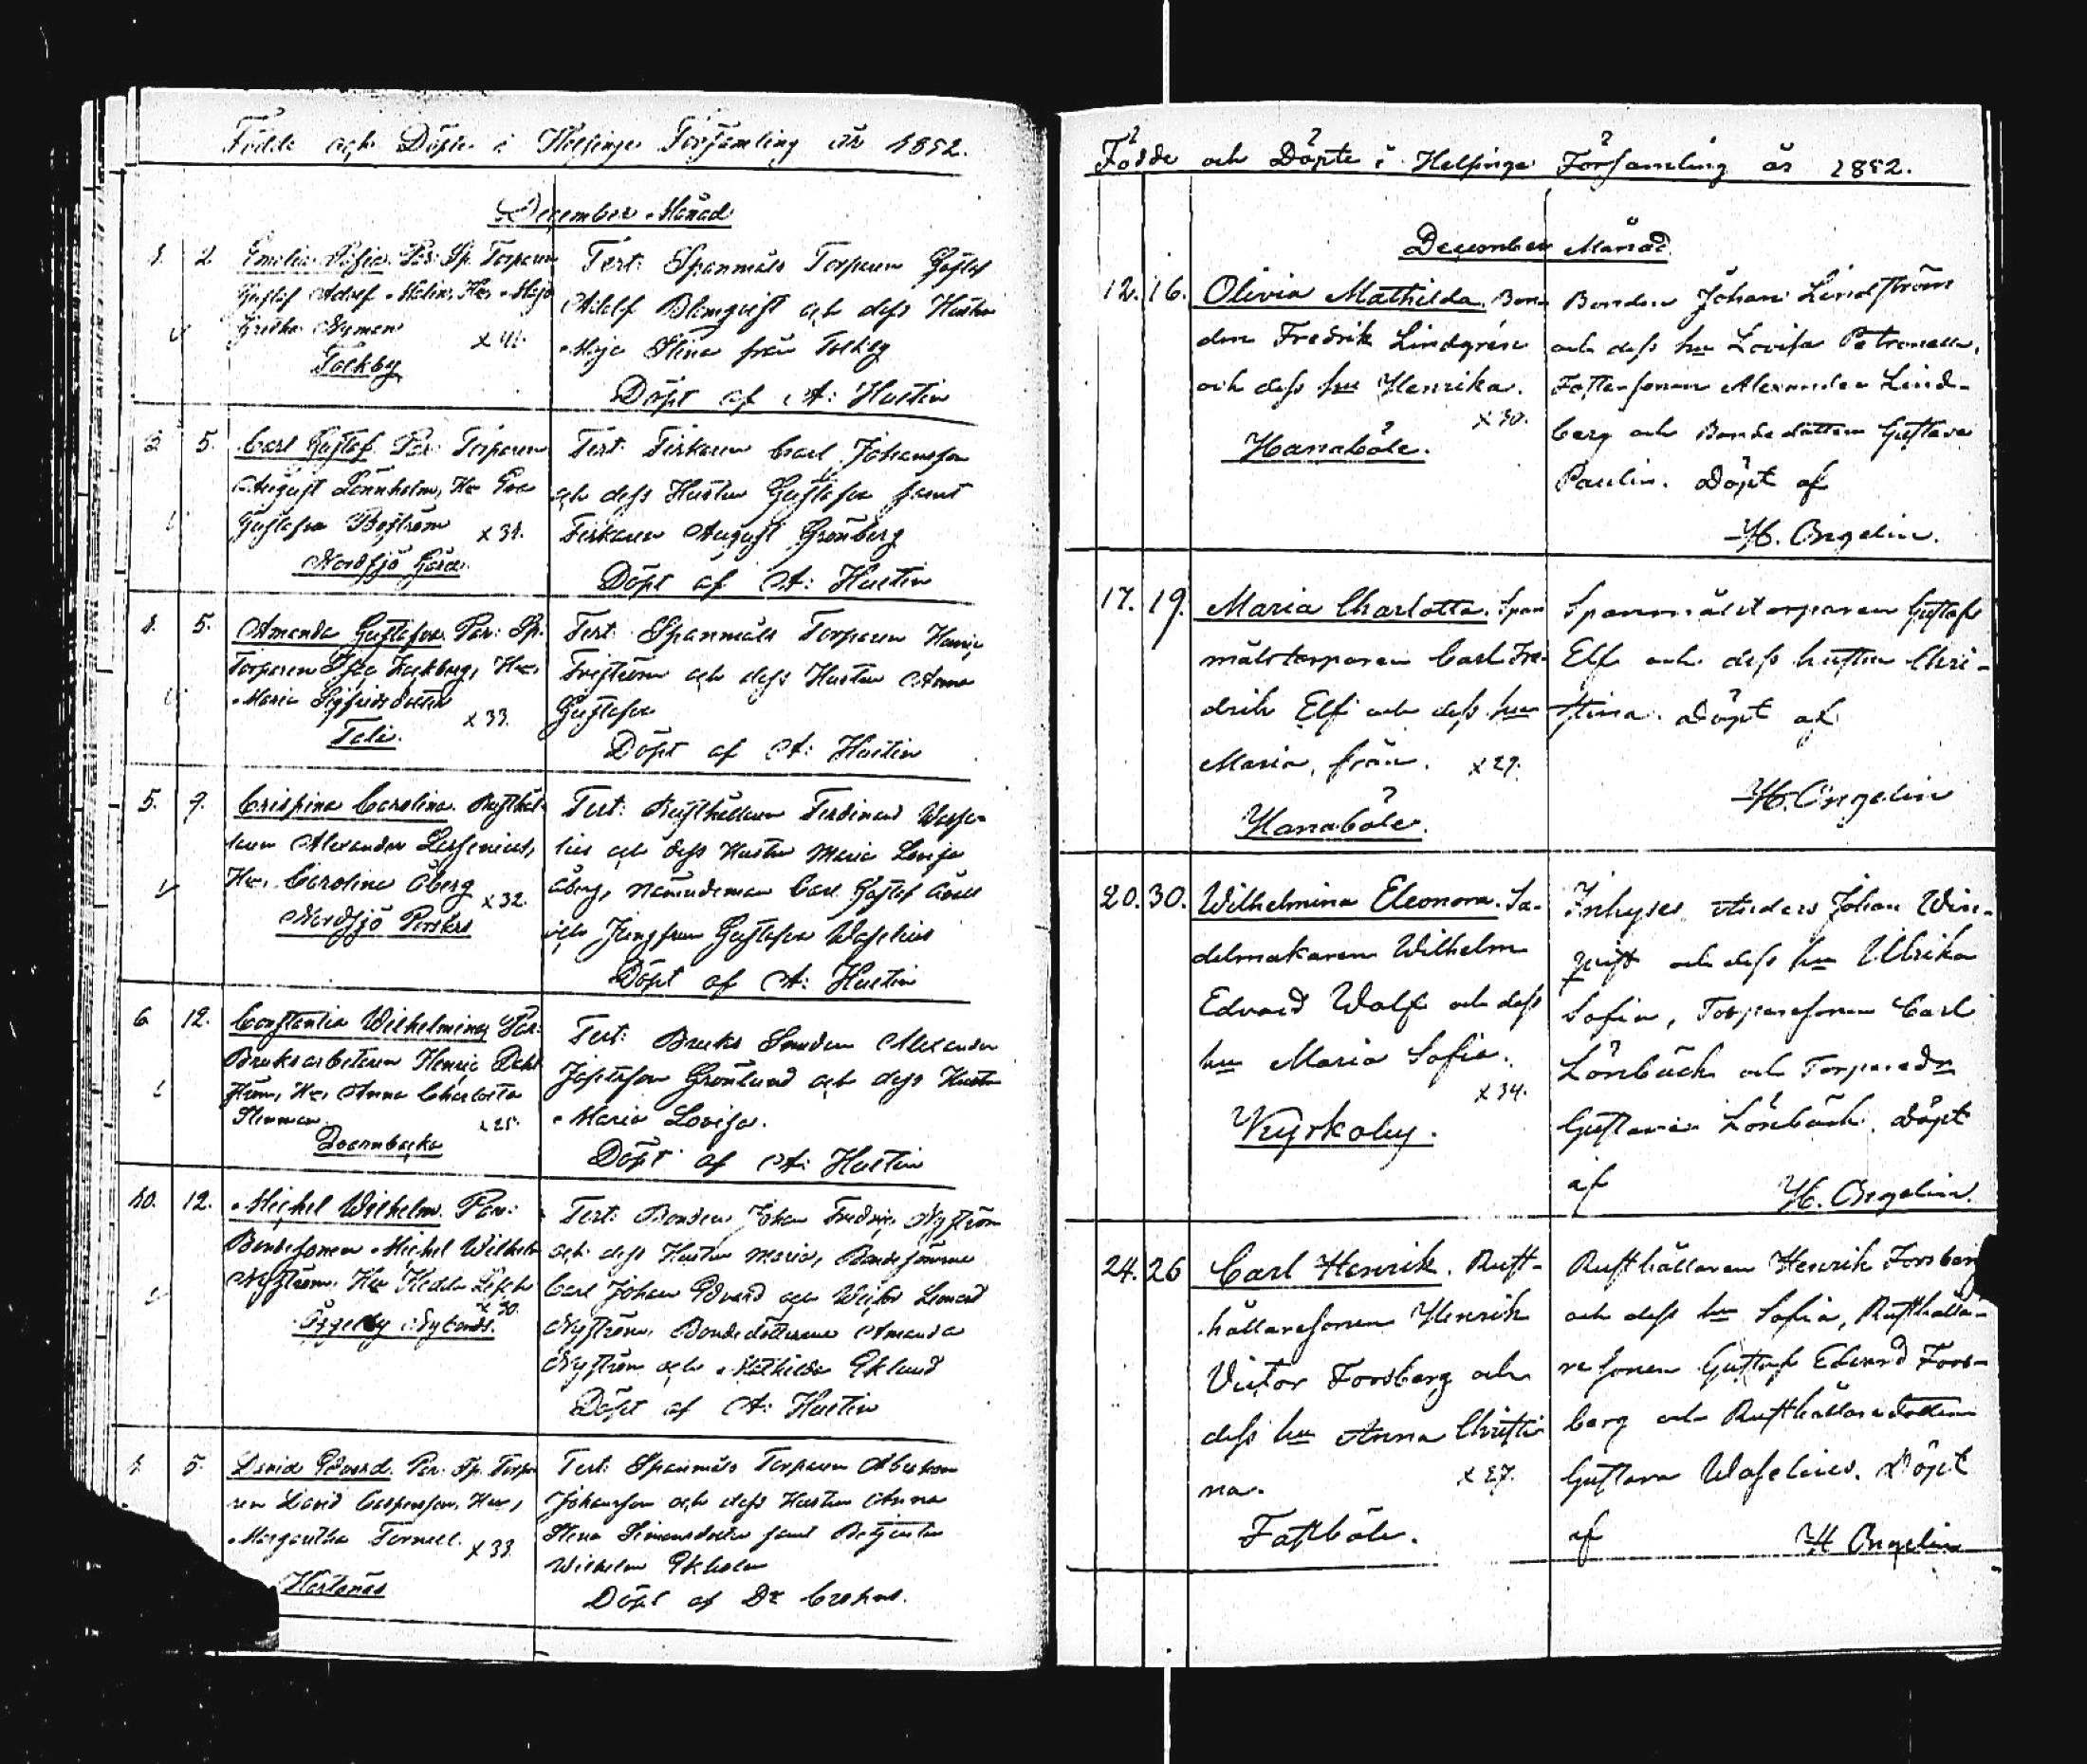 Födde och Döpte i Helsinge Församling år 1852.
December Månad
1. 2. Emelie Sofia. Par: Sp. Torparen
Gustaf Adolf Malin, Hu, Maja
Greta Nyman x 41.
Tolkby
Test: Spanmåls Torparen Gustaf
Adolf Blomqvist och dess Hustru
Maja Stina från Tolkby
Döpt af A: Hustin
5. Carl Gustaf. Par: Torparen
August Lönnholm, Hu Eva
Gustafva Boström x 31.
Nordsjö Gård.
Test: Fiskaren Carl Johansson
och dess Hustru Gustafva samt
Fiskaren August Grönberg
Döpt af A: Hustin
5. Amanda Gustafva. Par: Sp.
Torparen Isac, Hu,
Maria Sigfridsdotter x 33.
Tali.
Test: Spanmåls Torparen Henric
och dess Hustru Anna
Gustafva
Döpt af A: Hustin
5. 9. Crispina Carolina. Rusthål-
laren Alexander
Hu, Carolina Öberg x 32.
Nordsjö
Test: Rusthållaren Ferdinand Wase-
lius och dess Hustru Maria Lovisa
Öberg, Nämndeman Carl Gustaf
och Jungfrun Gustafva Waselius
Döpt af A: Hustin
6 12. Constantia Wilhelmina, Par:
Bruksarbetaren Henric Dahl-
ström, Hu, Anna Charlotta
Stenman. x 25.
Test: Bruks Smeden Alexander
Josefsson Grönlund och dess Hustru
Maria Lovisa.
Döpt af A: Hustin
10. 12. Michel Wilhelm. Par:
Bondesonen Michel Wilhelm
Nyström, Hu Hedda
x 30.
Test: Bonden Johan Fredric Nyström
och dess Hustru Maria, Bondesönerne
Carl Johan Edvard och Victor Leonard
Nyström, Bondedöttrarne Amanda
Nyström och Mathilda Eklund
Döpt af A: Hustin
5. David Edvard. Par: Sp. Torpa-
ren David Caspersson, Hu,
Margaretha Fornell. x 33.
Hertonäs
Test: Spanmåls Torparen Abraham
Johansson och dess Hustru Anna
Stina Simonsdotter samt Betjenten
Wilhelm Ekholm
Döpt af Dr
Födde och Döpte i Helsinge Församling år 1852.
December Månad
12. 16. Olivia Mathilda. Bon-
den Fredrik Lindgrén
och dess hu Henrika.
x 30.
Hanaböle.
Bonden Johan Lindström
och dess hu Lovisa Petronella,
Fostersonen Alexander Lind-
berg och Bondedottern Gustava
Paulin. Döpt af
H. Ongelin.
17. 19. Maria Charlotta. Span
målstorparen Carl Fre-
drik Elf och dess hu
Maria, från. x 27.
Hanaböle.
Spannmålstorparen Gustaf
Elf och dess hustru Chri-
stina. Döpt af
H. Ongelin
20. 30. Wilhelmina Eleonora. Sa-
delmakaren Wilhelm
Edvard Wolf och dess
hu Maria Sofia.
x 34.
Kyrkoby.
Inhyses Anders Johan Win-
qvist och dess hu Ulrika
Sofia, Torparesonen Carl
Lönbäck och Torparedr
Gustava Lönbäck. Döpt
af H. Ongelin.
24. 26 Carl Henrik. Rust-
hållaresonen Henrik
Victor Forsberg och
dess hu Anna Christi
na. x 27.
Fastböle.
Rusthållaren Henrik Forsberg
och dess hu Sofia, Rusthålla-
resonen Gustaf Edvard Fors-
berg och Rusthållaredottern
Gustava Waselius. Döpt
af H Ongelin